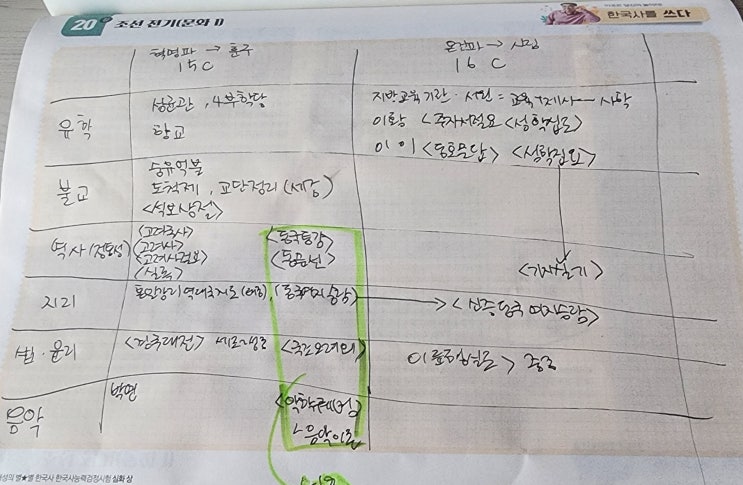 20 조선 전기(문화 I)
한국사를 쓰다
혁명파 → 훈구
15C
온건파 → 사림
16C
유학
성균관, 4부학당
향교
지방교육기관 · 서원 = 교육+제사 사학
이황 <주자서절요 <성학십도>
이이 <동호문답> <성학집요>
불교
숭유억불
도첩제, 교단정리 (세종)
<석보상절>
역사 (정통성)
<고려국사>
<고려사>
<고려사절요>
<실록>
<동국통감>
<동문선>
<기자실기>
지리
혼일강리역대국지도 (태종), <동국여지승람>
<신증동국여지승람>
법 · 윤리
<경국대전> 세조~성종
<국조오례의>
이륜행실도> 중종
음악
박연
<악학궤범>
ㄴ 음악이론
성종
한국사능력검정시험 심화 상